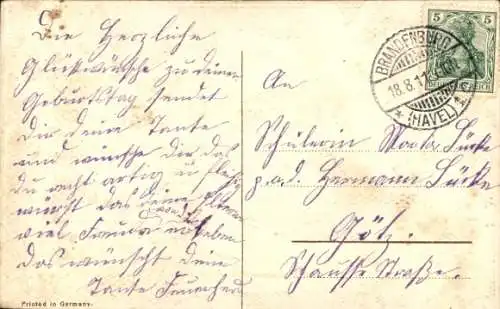 Die Herzliche
Glückwünsche zu deinem
Geburtstag sendet
Dir deine Tante
und wünsche dir das
du recht artig u fleißig
wirst das deine Eltern
viel Freude
das wünscht dein
Tante
Printed in Germany.
5
BRANDENBURG
18.8.11
(HAVEL)
An
Schülerin
p.ad. Hermann Lücke
Götz.
Straße.